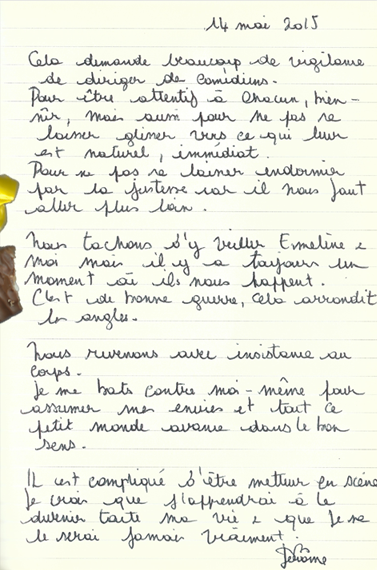 14 mai 2015
Cela demande beaucoup de vigilance
de diriger de comédiens.
Pour être attentif à chacun, bien-
sûr, mais aussi pour ne pas se
laisser glisser vers ce qui leur
est naturel, immédiat.
Pour ne pas se laisser endormir
par la justesse car il nous faut
aller plus loin.
Nous tachons d'y veiller Emeline &
moi mais il y a toujours un
moment où ils nous happent.
C'est de bonne guerre, cela arrondit
les angles.
Nous revenons avec insistance au
corps.
Je me bats contre moi-même pour
assumer mes envies et tout ce
petit monde avance dans le bon
sens.
Il est compliqué d'être metteur en scène
Je crois que j'apprendrai à le
devenir toute ma vie & que je ne
le serai jamais vraiment.
Jérôme